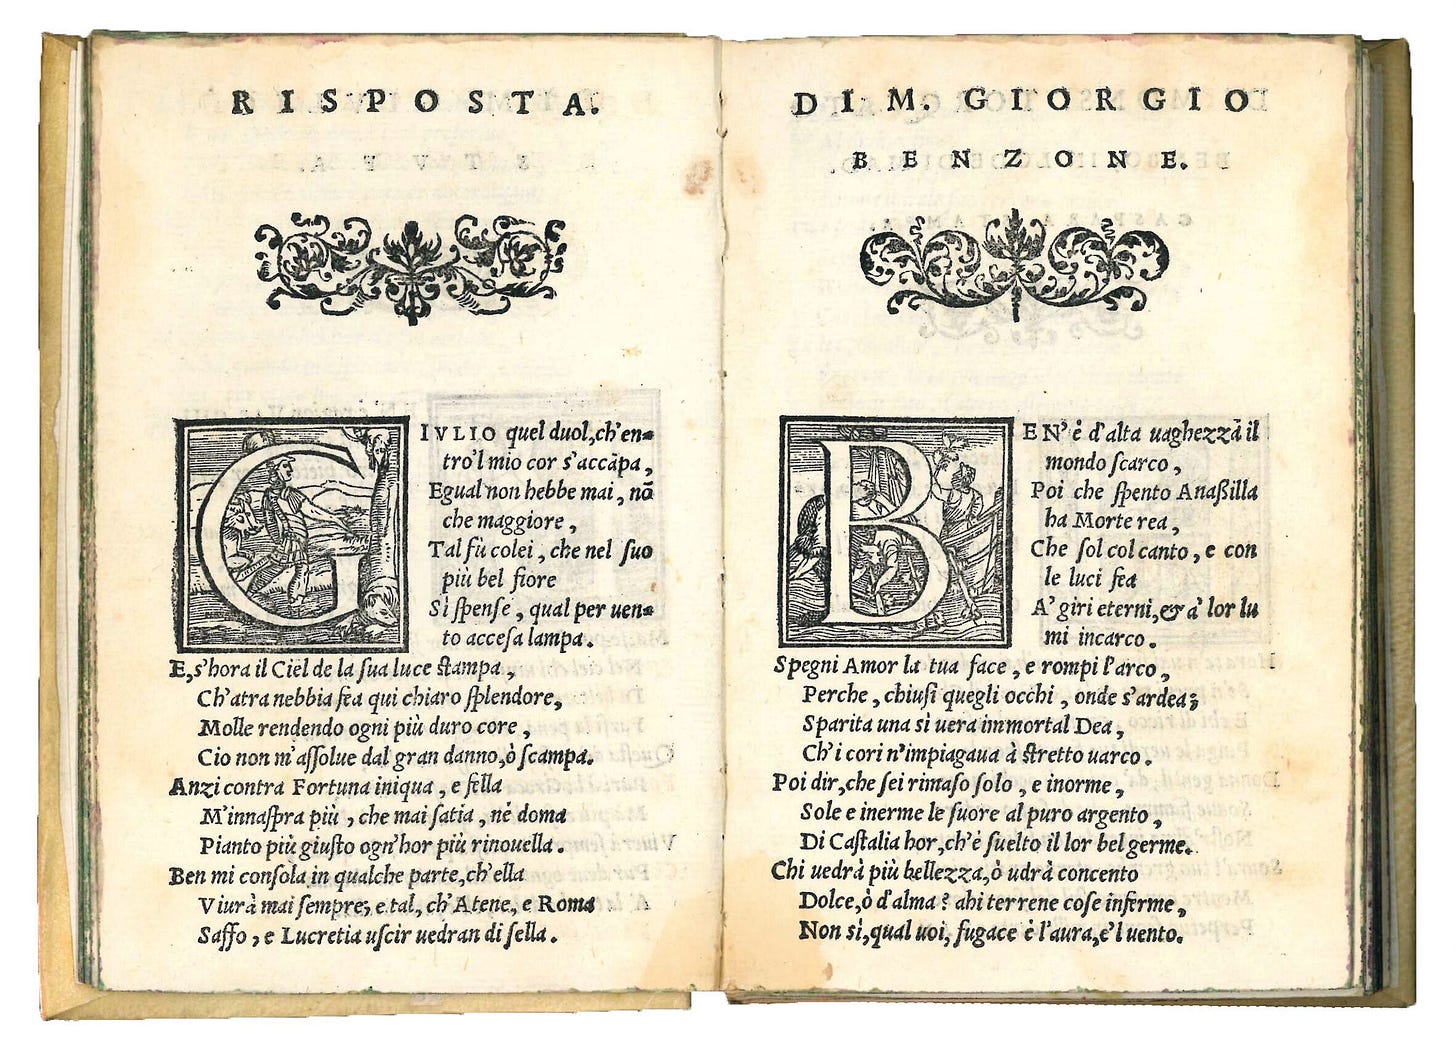 RISPOSTA.
GIVLIO quel duol, ch'en-
tro'l mio cor s'accãpa,
Egual non hebbe mai, nõ
che maggiore,
Tal fù colei, che nel suo
più bel fiore
Sì spense, qual per uen-
to accesa lampa.
E, s'hora il Ciel de la sua luce stampa,
Ch'atra nebbia fea qui chiaro splendore,
Molle rendendo ogni più duro core,
Cio non m'assolue dal gran danno, ò scampa.
Anzi contra Fortuna iniqua, e fella
M'innaspra più, che mai satia, nè doma
Pianto più giusto ogn'hor più rinouella.
Ben mi consola in qualche parte, ch'ella
Viurà mai sempre; e tal, ch'Atene, e Roma
Saffo, e Lucretia uscir uedran di sella.
DI M. GIORGIO
BENZONE.
BEN' è d'alta uaghezza il
mondo scarco,
Poi che spento Anaßilla
ha Morte rea,
Che sol col canto, e con
le luci fea
A' giri eterni, & à lor lu
mi incarco.
Spegni Amor la tua face, e rompi l'arco,
Perche, chiusi quegli occhi, onde s'ardea;
Sparita una sì uera immortal Dea,
Ch'i cori n'impiagaua à stretto uarco.
Poi dir, che sei rimaso solo, e inorme,
Sole e inerme le suore al puro argento,
Di Castalia hor, ch'è suelto il lor bel germe.
Chi uedrà più bellezza, ò udrà concento
Dolce, ò d'alma? ahi terrene cose inferme,
Non sì, qual uoi, fugace è l'aura, e'l uento.